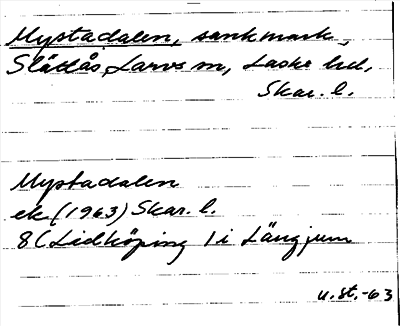 Mystadalen, sankmark,
Slättås, Larvs sn, Laske hd,
Skar. l.
Mystadalen
ek (1963) Skar. l.
8C Lidköping 1 i Längjum
u.st.-63